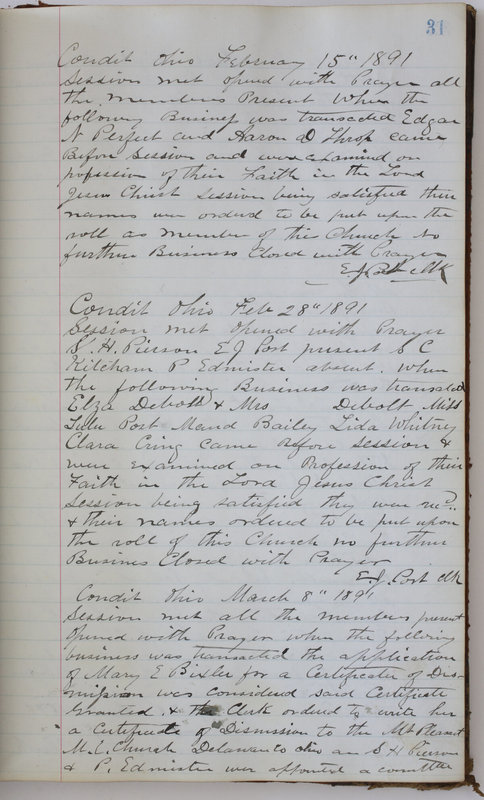 31
Condit Ohio February 15" 1891
Session met opened with Prayer all
the members Present When the
following Business was transacted Edgar
N Perfect and Aaron D Throp came
Before Session and were examined on
profession of their Faith in the Lord
Jesus Christ Session being satisfied their
names were ordered to be put upon the
roll as member of this Church No
further Business Closed with Prayer
E J Post Clk
Condit Ohio Feb 28" 1891
Session met opened with Prayer
S. H. Pierson E J Post present S C
Kitcham P Edmister absent. When
the following Business was transacted
Elza Debolt & Mrs Debolt Miss
Post Maud Bailey Lida Whitney
Clara Cring came before session &
were examined on Profession of their
Faith in the Lord Jesus Christ
Session being satisfied they were recd
& their names ordered to be put upon
the roll of this Church no further
Busines Closed with Prayer
E. J. Post Clk
Condit Ohio March 8" 1891
Session met all the members present
opened with Prayer when the following
business was transacted the application
of Mary E Bixler for a Certificate of Dis-
mission was considered said Certificate
Granted. & the Clerk ordered to write her
a Certificate of Dismission to the Mt Pleasant
M. E. Church Delaware co Ohio S H Pierson
& P. Edmister were appointed a committee